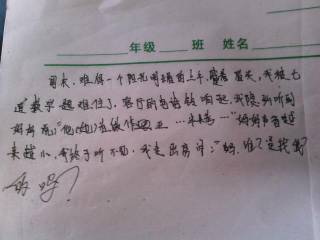 年级 班 姓名
周末，难得一个阳光明媚的上午，蓝天，我被七
道数学题难住了，客厅的电话铃响起，我隐约听到
妈妈说："他(她)在做作业……来……"妈妈声音越
来越小，我终于听不见，我走出房问："妈，谁？是找我
的吗？